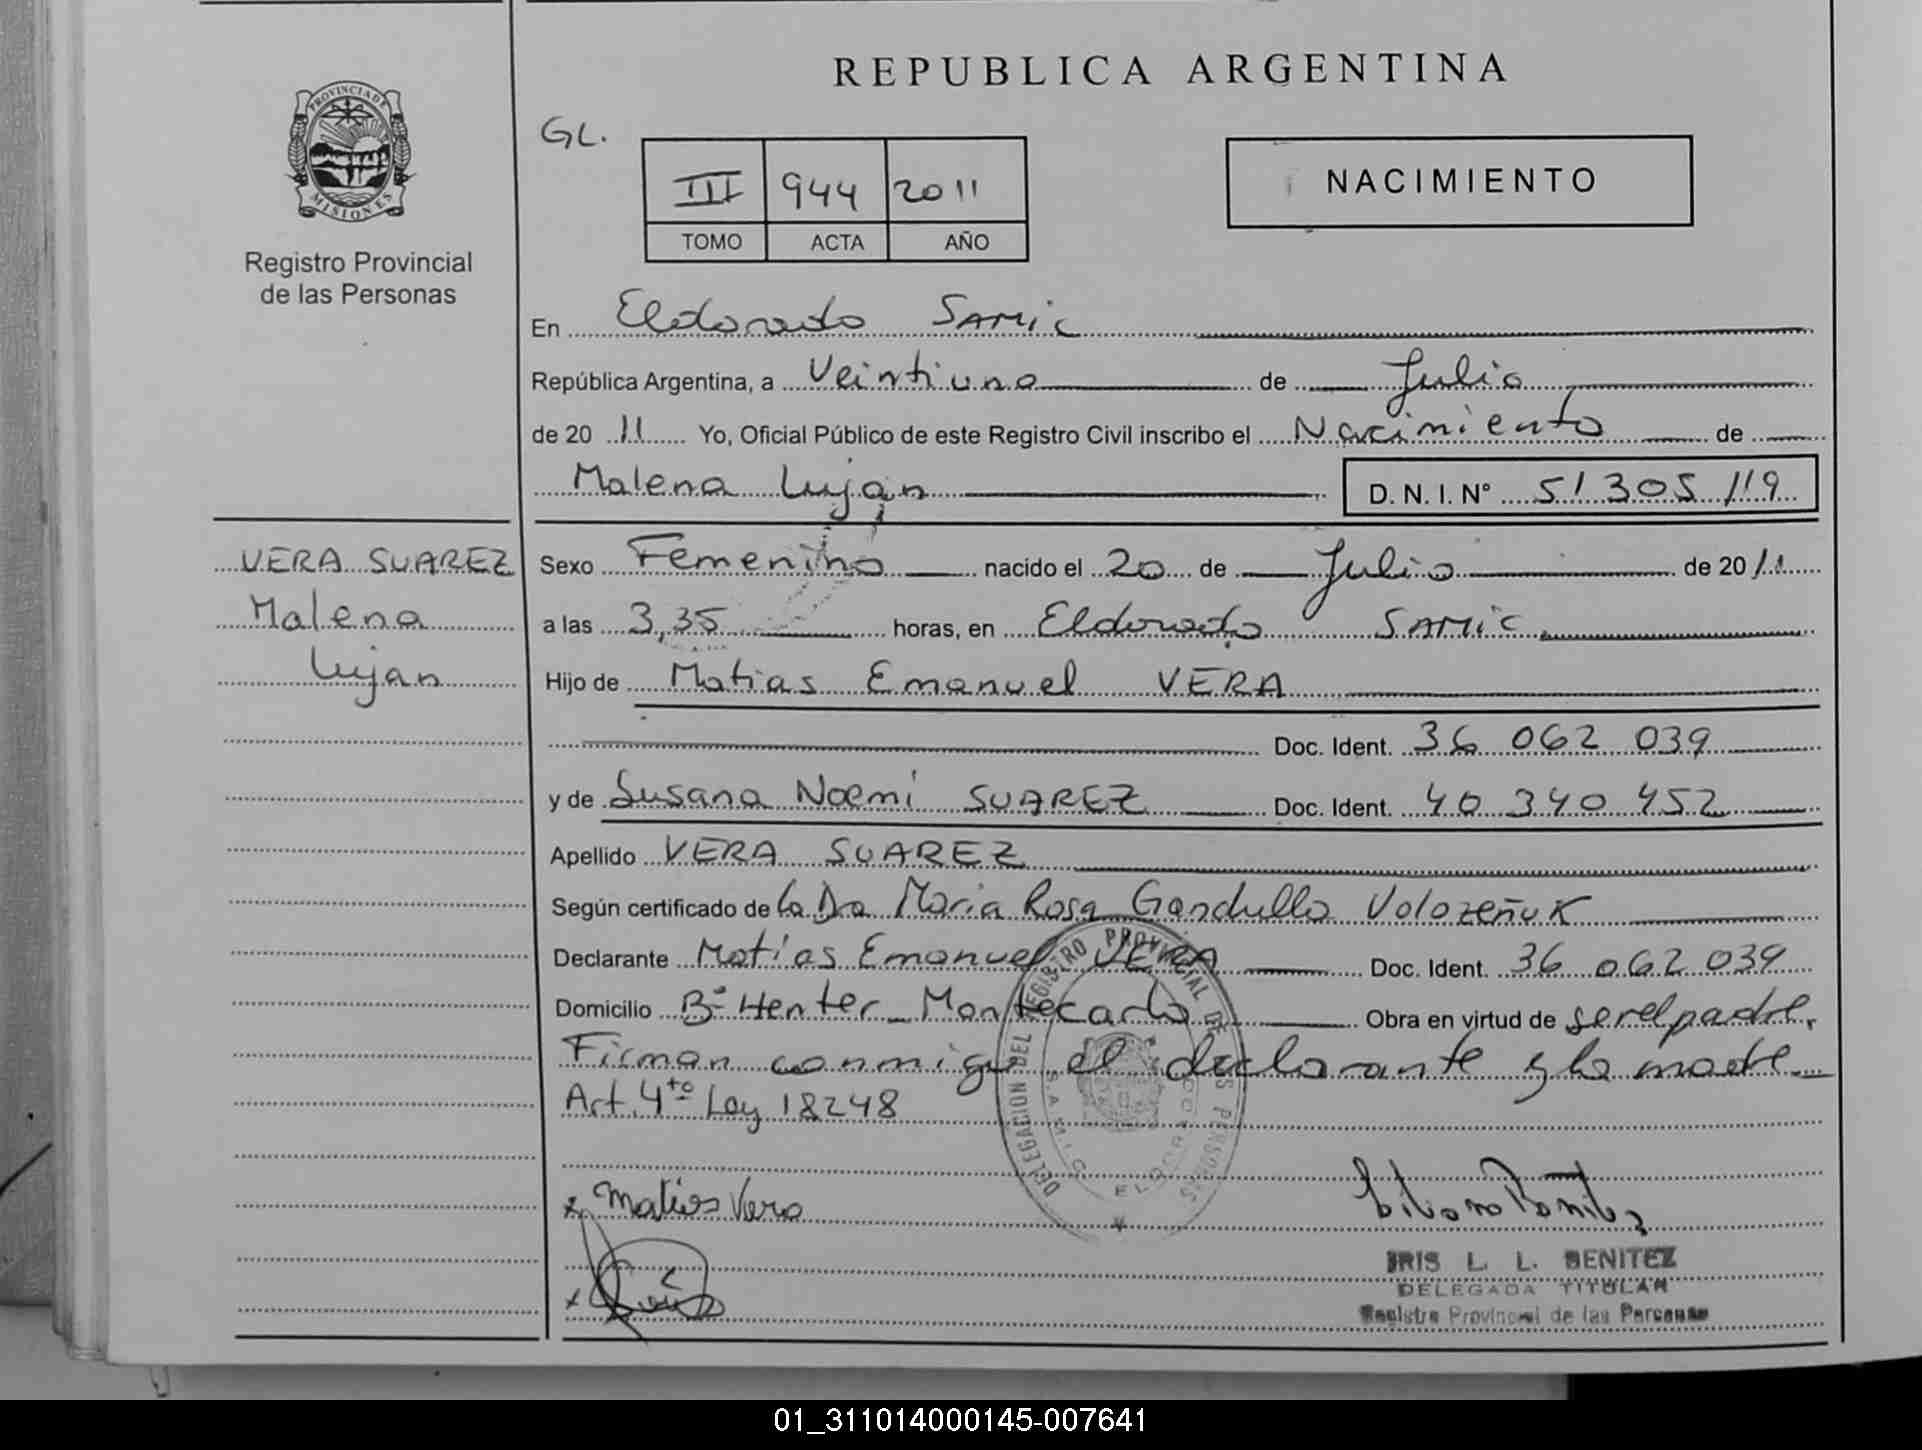 REPUBLICA ARGENTINA
PROVINCIA DE
MISIONES
Registro Provincial
de las Personas
GL.
III 944 2011
TOMO ACTA AÑO
NACIMIENTO
En Eldorado SAMIC
República Argentina, a Veintiuno de Julio
de 20 11 Yo, Oficial Público de este Registro Civil inscribo el Nacimiento de
Malena Luján D. N. I. Nº 51 305 119
VERA SUAREZ
Malena
Lujan
Sexo Femenino nacido el 20 de Julio de 20 11
a las 3,35 horas, en Eldorado SAMIC
Hijo de Matias Emanuel VERA
Doc. Ident. 36 062 039
y de Susana Noemi SUAREZ Doc. Ident. 40 340 452
Apellido VERA SUAREZ
Según certificado de la Dra Maria Rosa Gandulla Volozeñuk
Declarante Matías Emanuel VERA Doc. Ident. 36 062 039
Domicilio Bº Henter - Montecarlo Obra en virtud de ser el padre.
Firman conmigo el declarante y la madre
Art. 4to Ley 18248
DELEGACION DEL REGISTRO PROVINCIAL DE LAS PERSONAS
S.A.M.I.C. ELDORADO
x Matias Vera
x
IRIS L. L. BENITEZ
DELEGADA TITULAR
Registro Provincial de las Personas
01_311014000145-007641